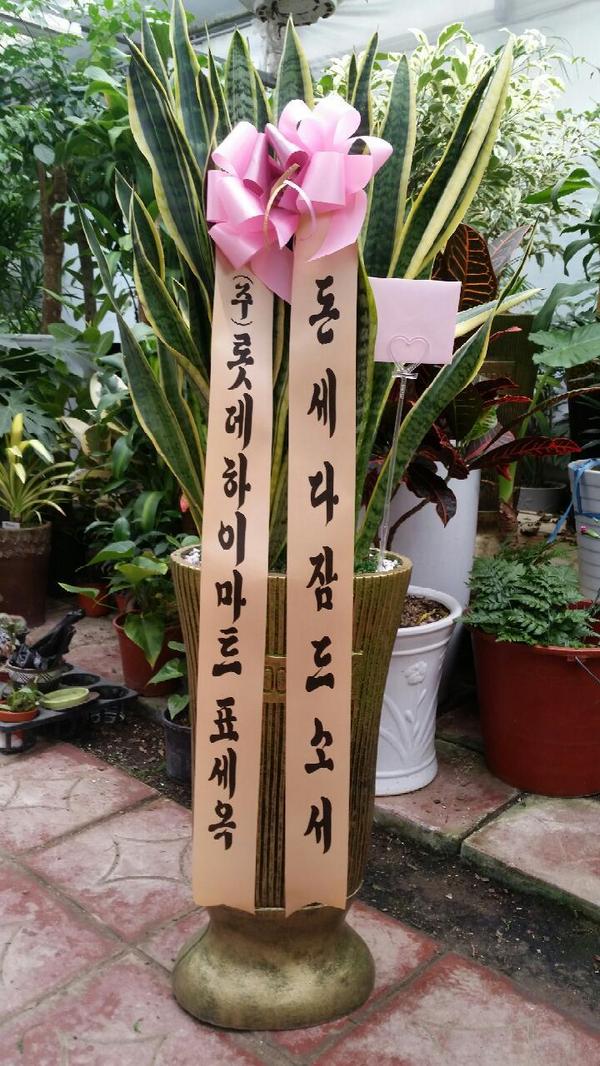 (주)롯데하이마트 표세옥
돈세다잠드소서